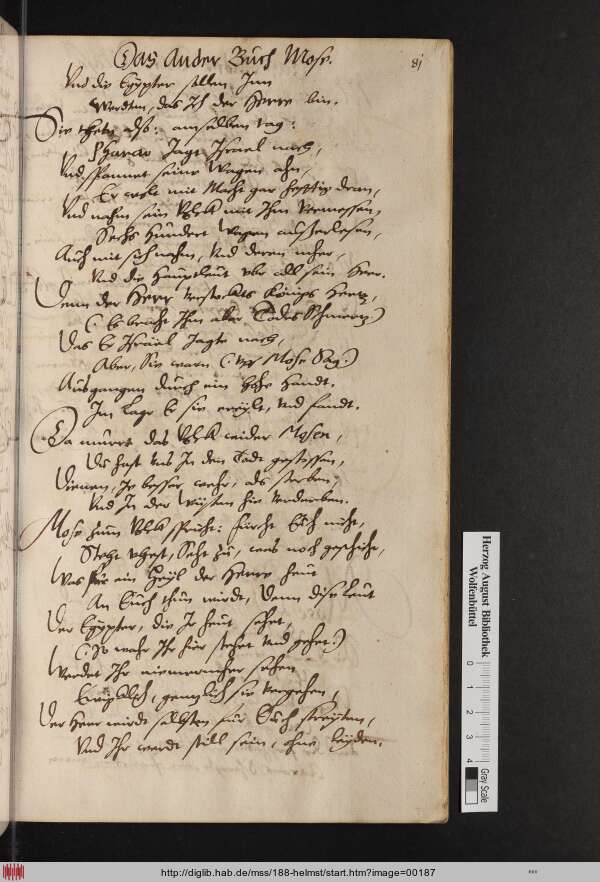 Das Ander Buch Mose.
81
Vnd die Egypter sollen Inn
Werdten, das Ich der Herre bin.
Sie theten also: am selben tag:
Pharao Jagt Israel nach,
Vnd spannet seine Wagen ahn,
Er welt mit Macht gar hefftig dran,
Vnd nahm sein Volk mit Ihm vermessen,
Sechs hundert Wagen außerlesen,
Auch mit sich nahm, Vnd deren mher,
Vnd die Hauptleut vbr all sein Heer.
Denn der Herr verstockts Königs Hertz,
(Es bracht Ihm aber Todes Schmertz)
Das Er Israel Jagte nach,
Aber, Sie warn (Mose Sag)
Ausgangen durch ein hohe Handt.
Im lagr Er sie ereylt, vnd fandt.
Da murret das Volk wider Mosen,
Du hast vns In den Todt gestossen,
Dienen, Je besser wehr, als sterben
Vnd In der Wüsten hie verderben.
Mose zum Volk spricht: fürcht Euch nicht,
Steht vhest, Seht zu, was noch geschicht,
Was für ein Heyl der Herre heut
An Euch thun wirdt, Denn dise leut
Der Egypter, die Ir heut sehet,
(So wahr Ihr hier stehet vnd gehet)
Werdet Ihr nimmermehr sehen
Ewigklich, gentzlich sie vergehen,
Der Herr wirdt selbsten für Euch streyten,
Vnd Ihr werdt still sein, ohne leyden.
Herzog August Bibliothek
Wolfenbüttel
0 1 2 3 4
Gray Scale
http://diglib.hab.de/mss/188-helmst/start.htm?image=00187